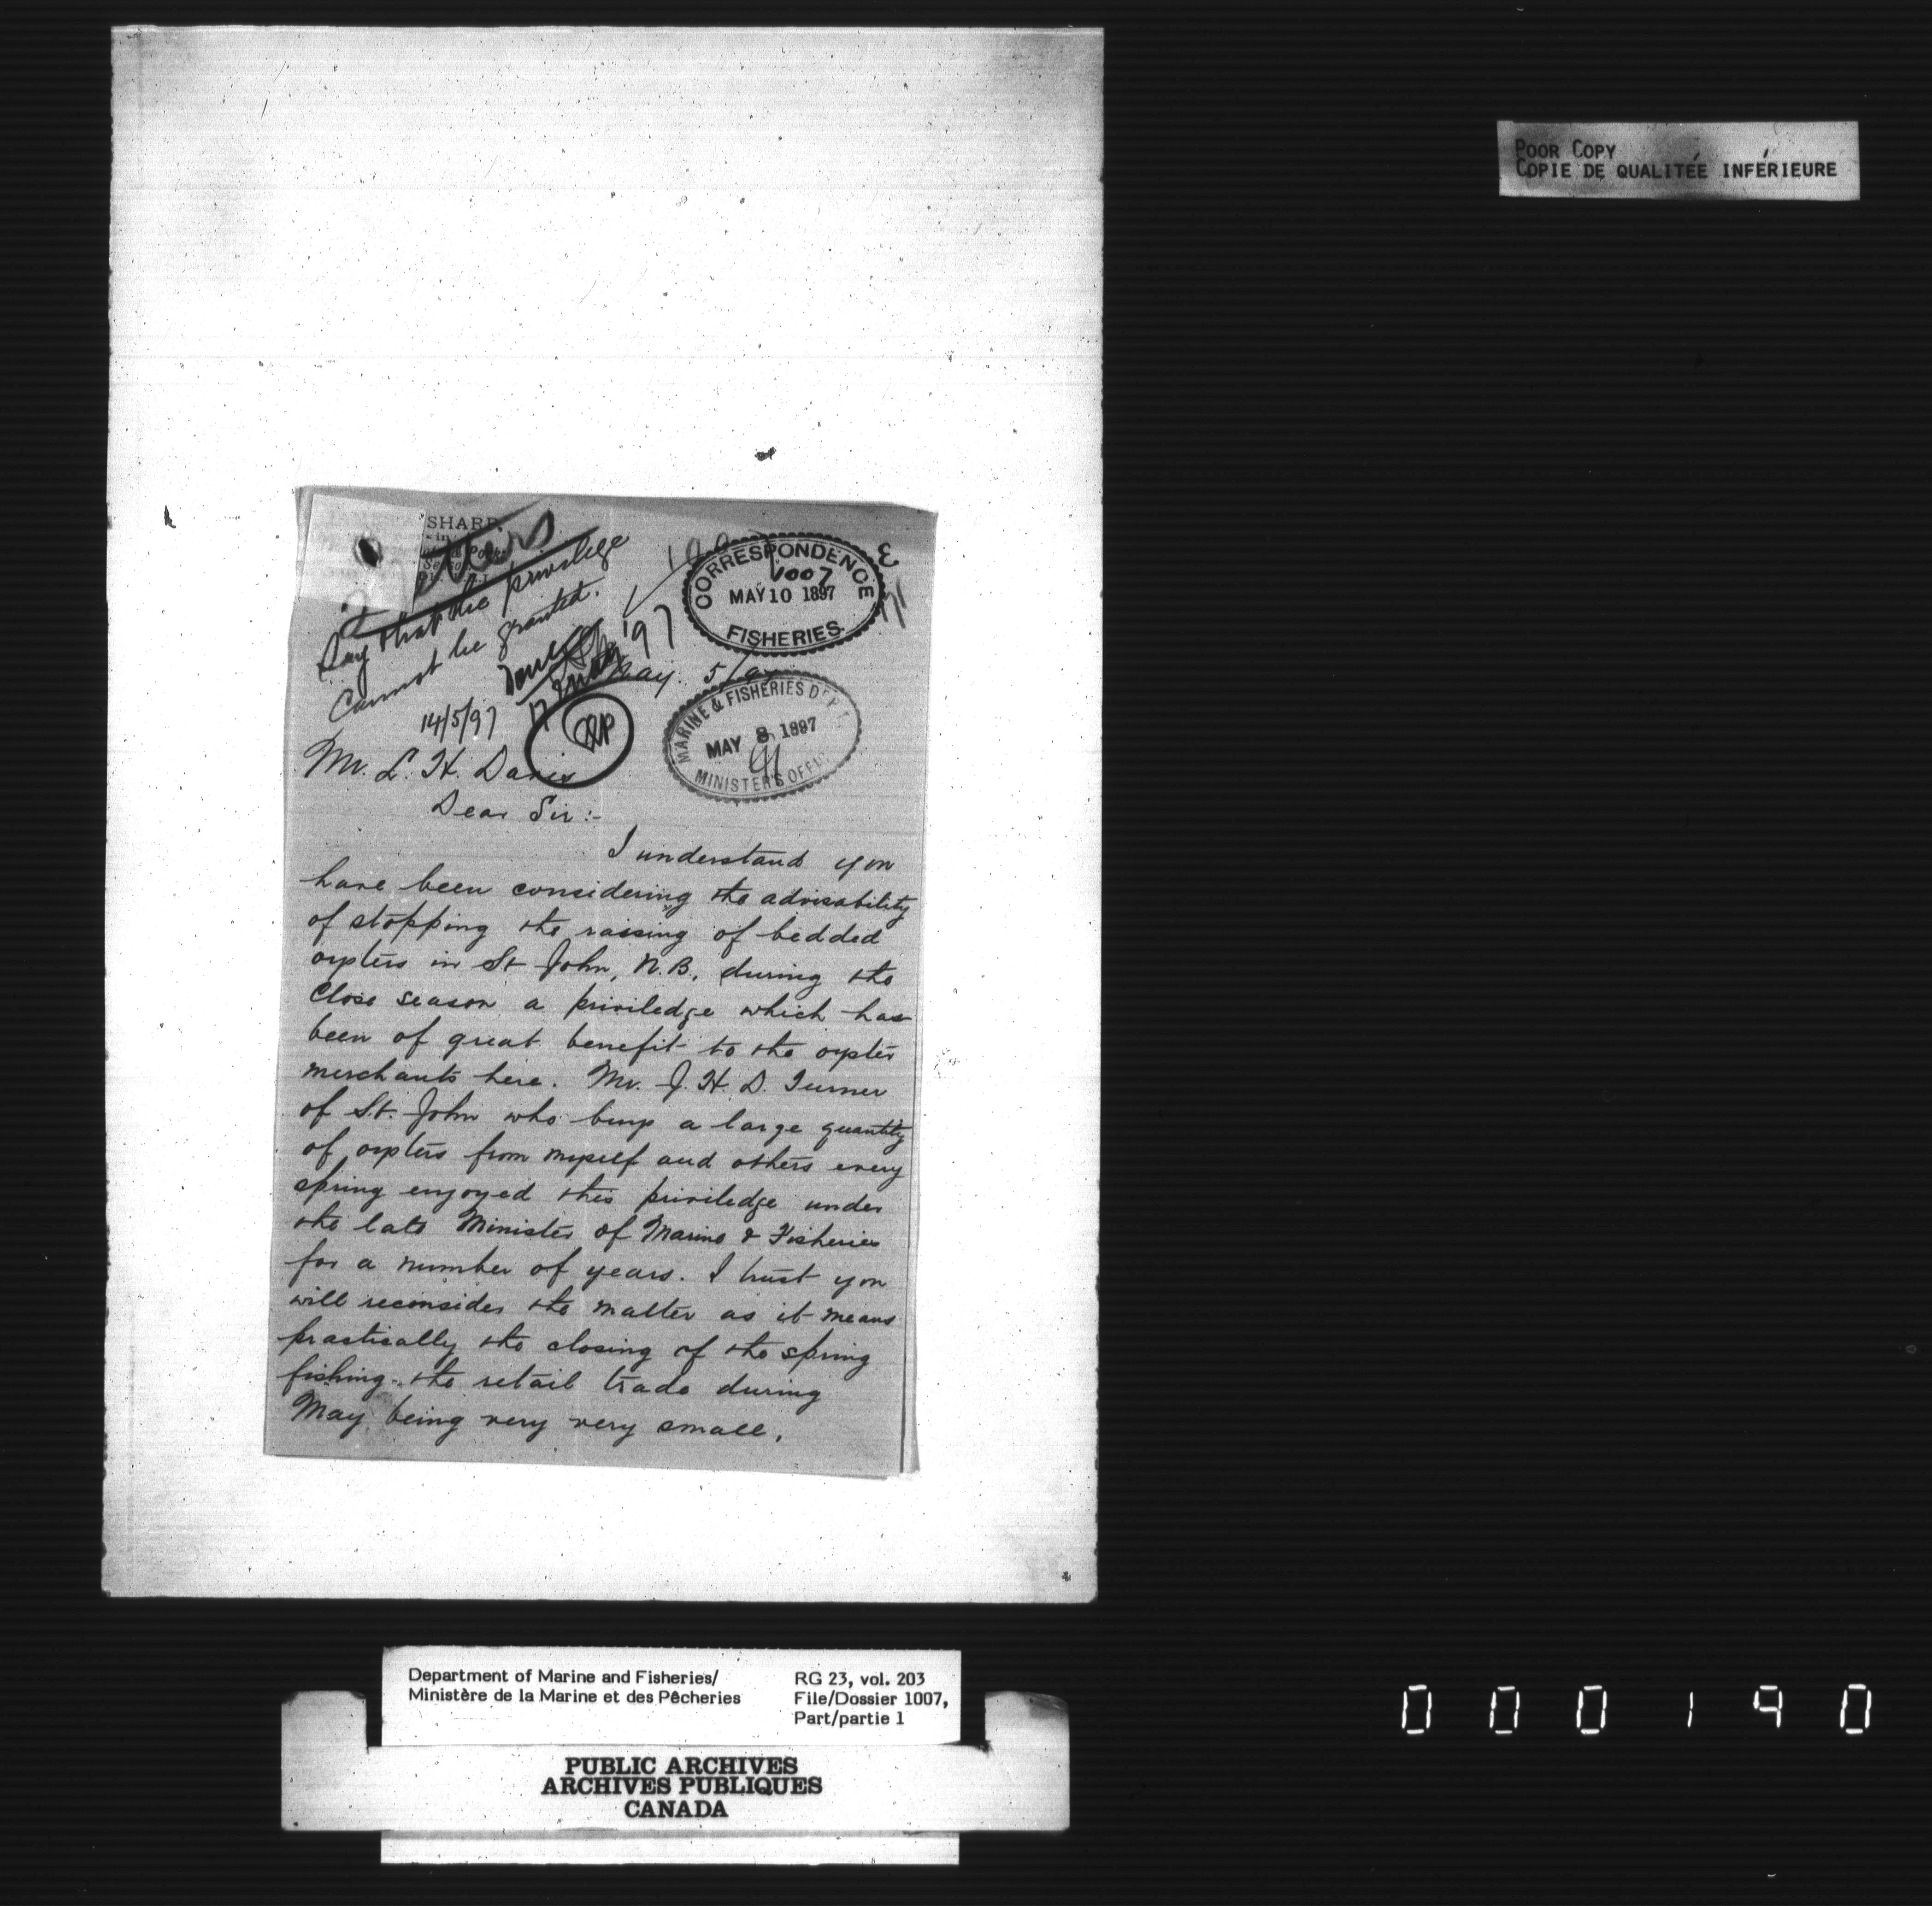 POOR COPY
COPIE DE QUALITÉE INFÉRIEURE
SHARP
Say that the privilege
cannot be granted.
14/5/97
CORRESPONDENCE
1007
MAY 10 1897
FISHERIES
May 5/97
MARINE & FISHERIES DEPT.
MAY 8 1897
MINISTER'S OFFICE
Mr. L. H. Davis
Dear Sir:-
I understand you
have been considering the advisability
of stopping the raising of bedded
oysters in St John, N.B., during the
close season a priviledge which has
been of great benefit to the oyster
merchants here. Mr. J. H. D. Turner
of St. John who buys a large quantity
of oysters from myself and others every
spring enjoyed this priviledge under
the late Minister of Marine & Fisheries
for a number of years. I trust you
will reconsider the matter as it means
practically the closing of the spring
fishing - the retail trade during
May being very very small.
Department of Marine and Fisheries/
Ministère de la Marine et des Pêcheries
RG 23, vol. 203
File/Dossier 1007,
Part/partie 1
PUBLIC ARCHIVES
ARCHIVES PUBLIQUES
CANADA
000190